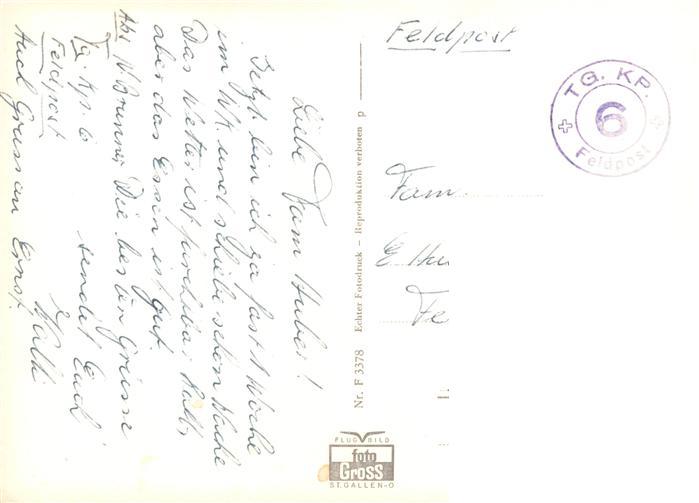 Liebe Fam. Huber!
Jetzt bin ich ja fast 1 Woche
im Wk. und schiebe schon Wache
Das Wetter ist furchtbar kalt,
aber das Essen ist gut.
Die besten Grüsse
sendet Euch
Walti
Auch Gruss an Ernst.
Abs. W. Brunner
Tg. Kp. 6
Feldpost
Nr. F 3378 Echter Fotodruck – Reproduktion verboten p
FLUG BILD
foto
GROSS
ST. GALLEN-O
Feldpost
TG. KP.
6
Feldpost
Fam.
E. Hu
Fe